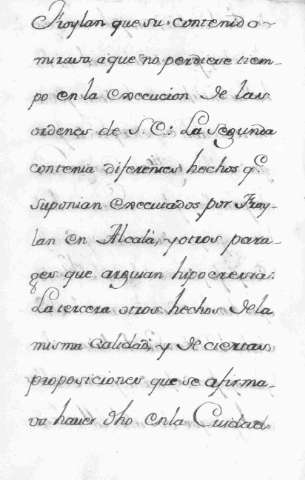 Froylan que su contenido
mirava a que no perdiese tiem-
po en la execucion de las
ordenes de S. C: La Segunda
contenia diferentes hechos q.e
suponian executados por Froy-
lan en Alcalá, y otros para-
ges que arguian hipocrecia:
La tercera otros hechos de la
misma calidad, y de ciertas
proposiciones que se afirma-
va haver dho en la Ciudad